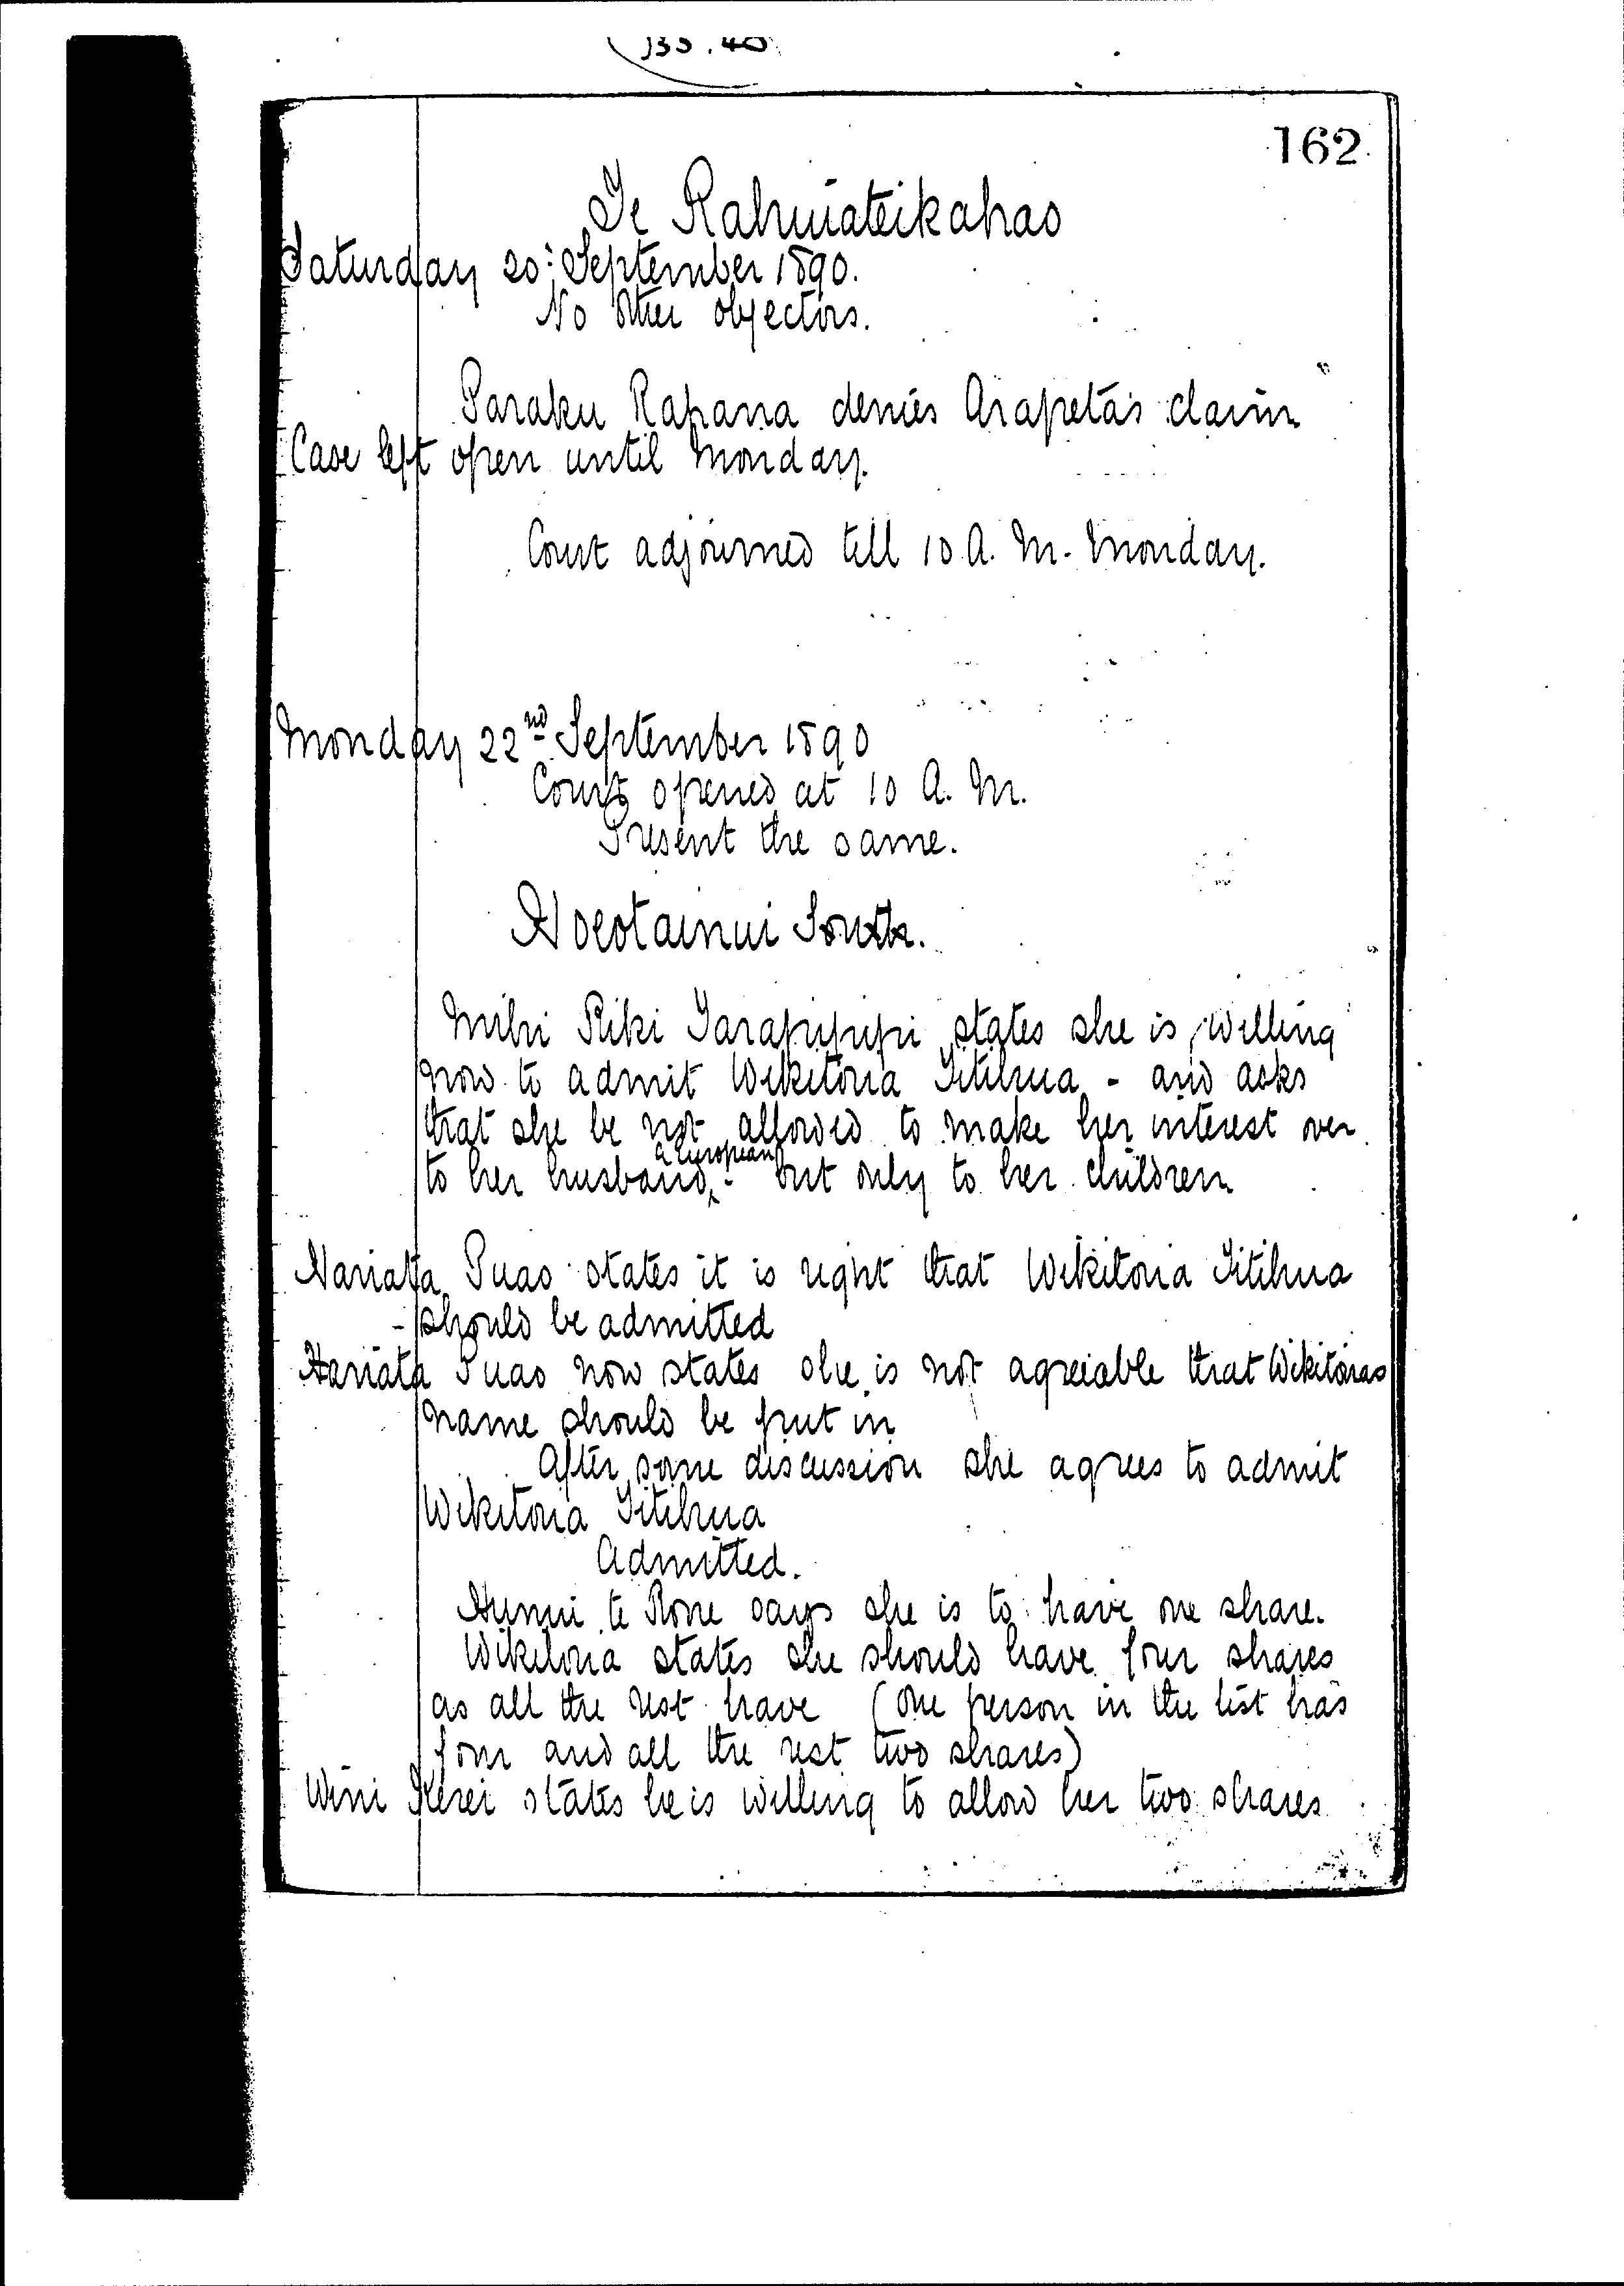 135.40
162
Te Rahuiateikahao
Saturday 20: September 1890.
No other objectors.
Paraku Rapana denies Arapeta's claim
Case left open until Monday.
Court adjourned till 10 A. M. Monday.
Monday 22nd September 1890
Court opened at 10 A. M.
Present the same.
Hoeotainui South.
Mihi Riki Tarapipipi states she is willing
now to admit Wikitoria Titihua - and asks
that she be not allowed to make her interest over
a European
to her husband, - but only to her children
Hariata Puao states it is right that Wikitoria Titihua
- should be admitted
Hariata Puao now states she is not agreeable that Wikitorias
name should be put in
After some discussion she agrees to admit
Wikitoria Titihua
Admitted.
te Rone says she is to have one share.
Wikitoria states she should have four shares
as all the rest have (one person in the list has
four and all the rest two shares)
Wini Kerei states he is willing to allow her two shares